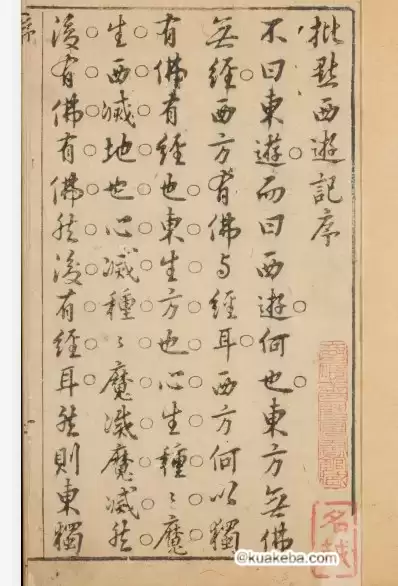 批點西遊記序
不曰東遊而曰西遊何也東方無佛
無經西方有佛與經耳西方何以獨
有佛有經也東生方也心生種〻魔
生西滅地也心滅種〻魔滅魔滅然
後有佛有佛然後有經耳然則東獨
序
@kuakeba.com